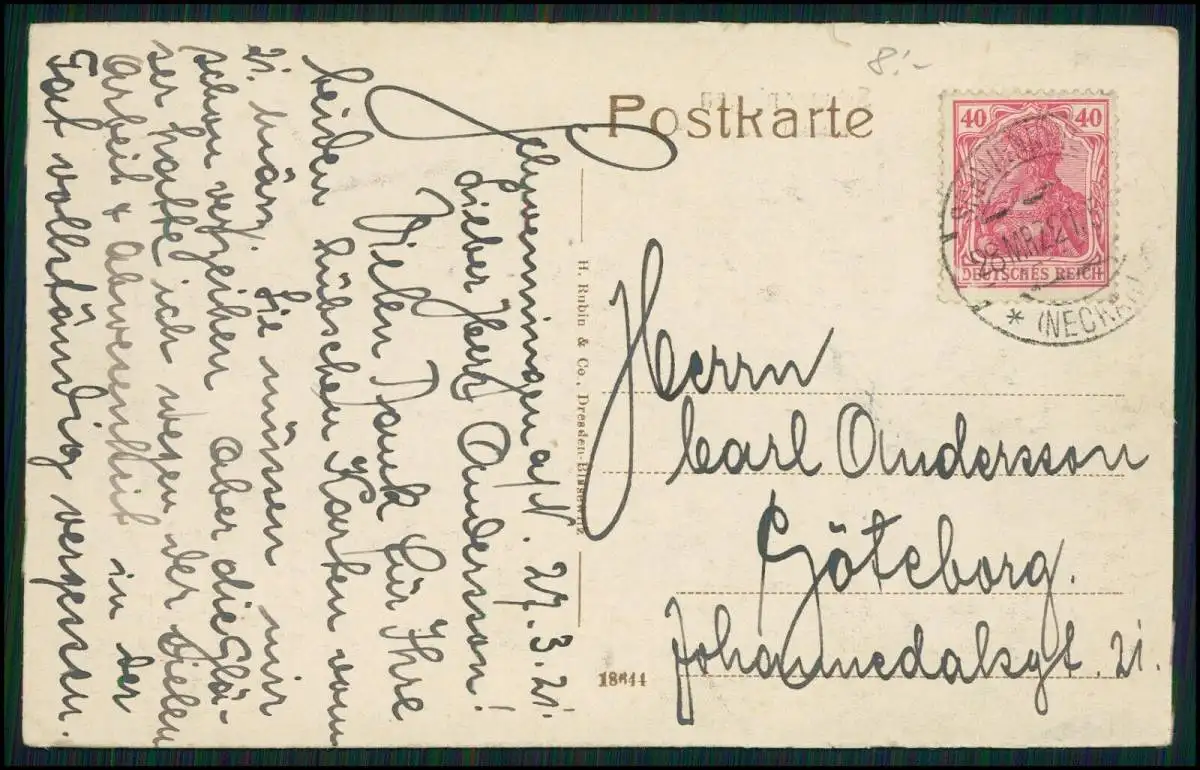 8.-
Postkarte
40 40
DEUTSCHES REICH
28 MRZ 21
* (NECKAR)
H. Rubin & Co., Dresden-Blasewitz
18644
Herrn
Carl Andersson
Göteborg.
Johannedalsgt. 21.
Schwenningen a/N. 27.3.21.
Lieber Herr Andersson!
Vielen Dank für Ihre
beiden hübschen Karten vom
21. März. Sie müssen mir
schon verzeihen aber die Glä-
ser hatte ich wegen der vielen
Arbeit & Abwesenheit in der
Tat vollständig vergessen.